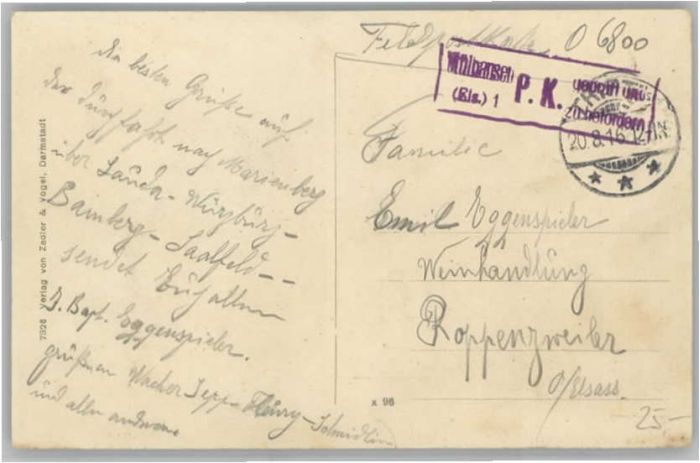 die besten Grüße auf
der Durchfahrt nach Marienberg
über Lauda - Würzburg -
Bamberg - Saalfeld - -
sendet Euch allen
J. Bapt. Eggenspieler.
grüßen Wacker Sepp - Fleury - Schmidlin
und alle andern
7326 Verlag von Zedler & Vogel, Darmstadt
Feldpostkarte. O 6800
Mülhausen
(Els.) 1
P. K.
geprüft und
zu befördern
20.8.16
Familie
Emil Eggenspieler
Weinhandlung
Roppenzweiler
O/Elsass.
x 96
25.-